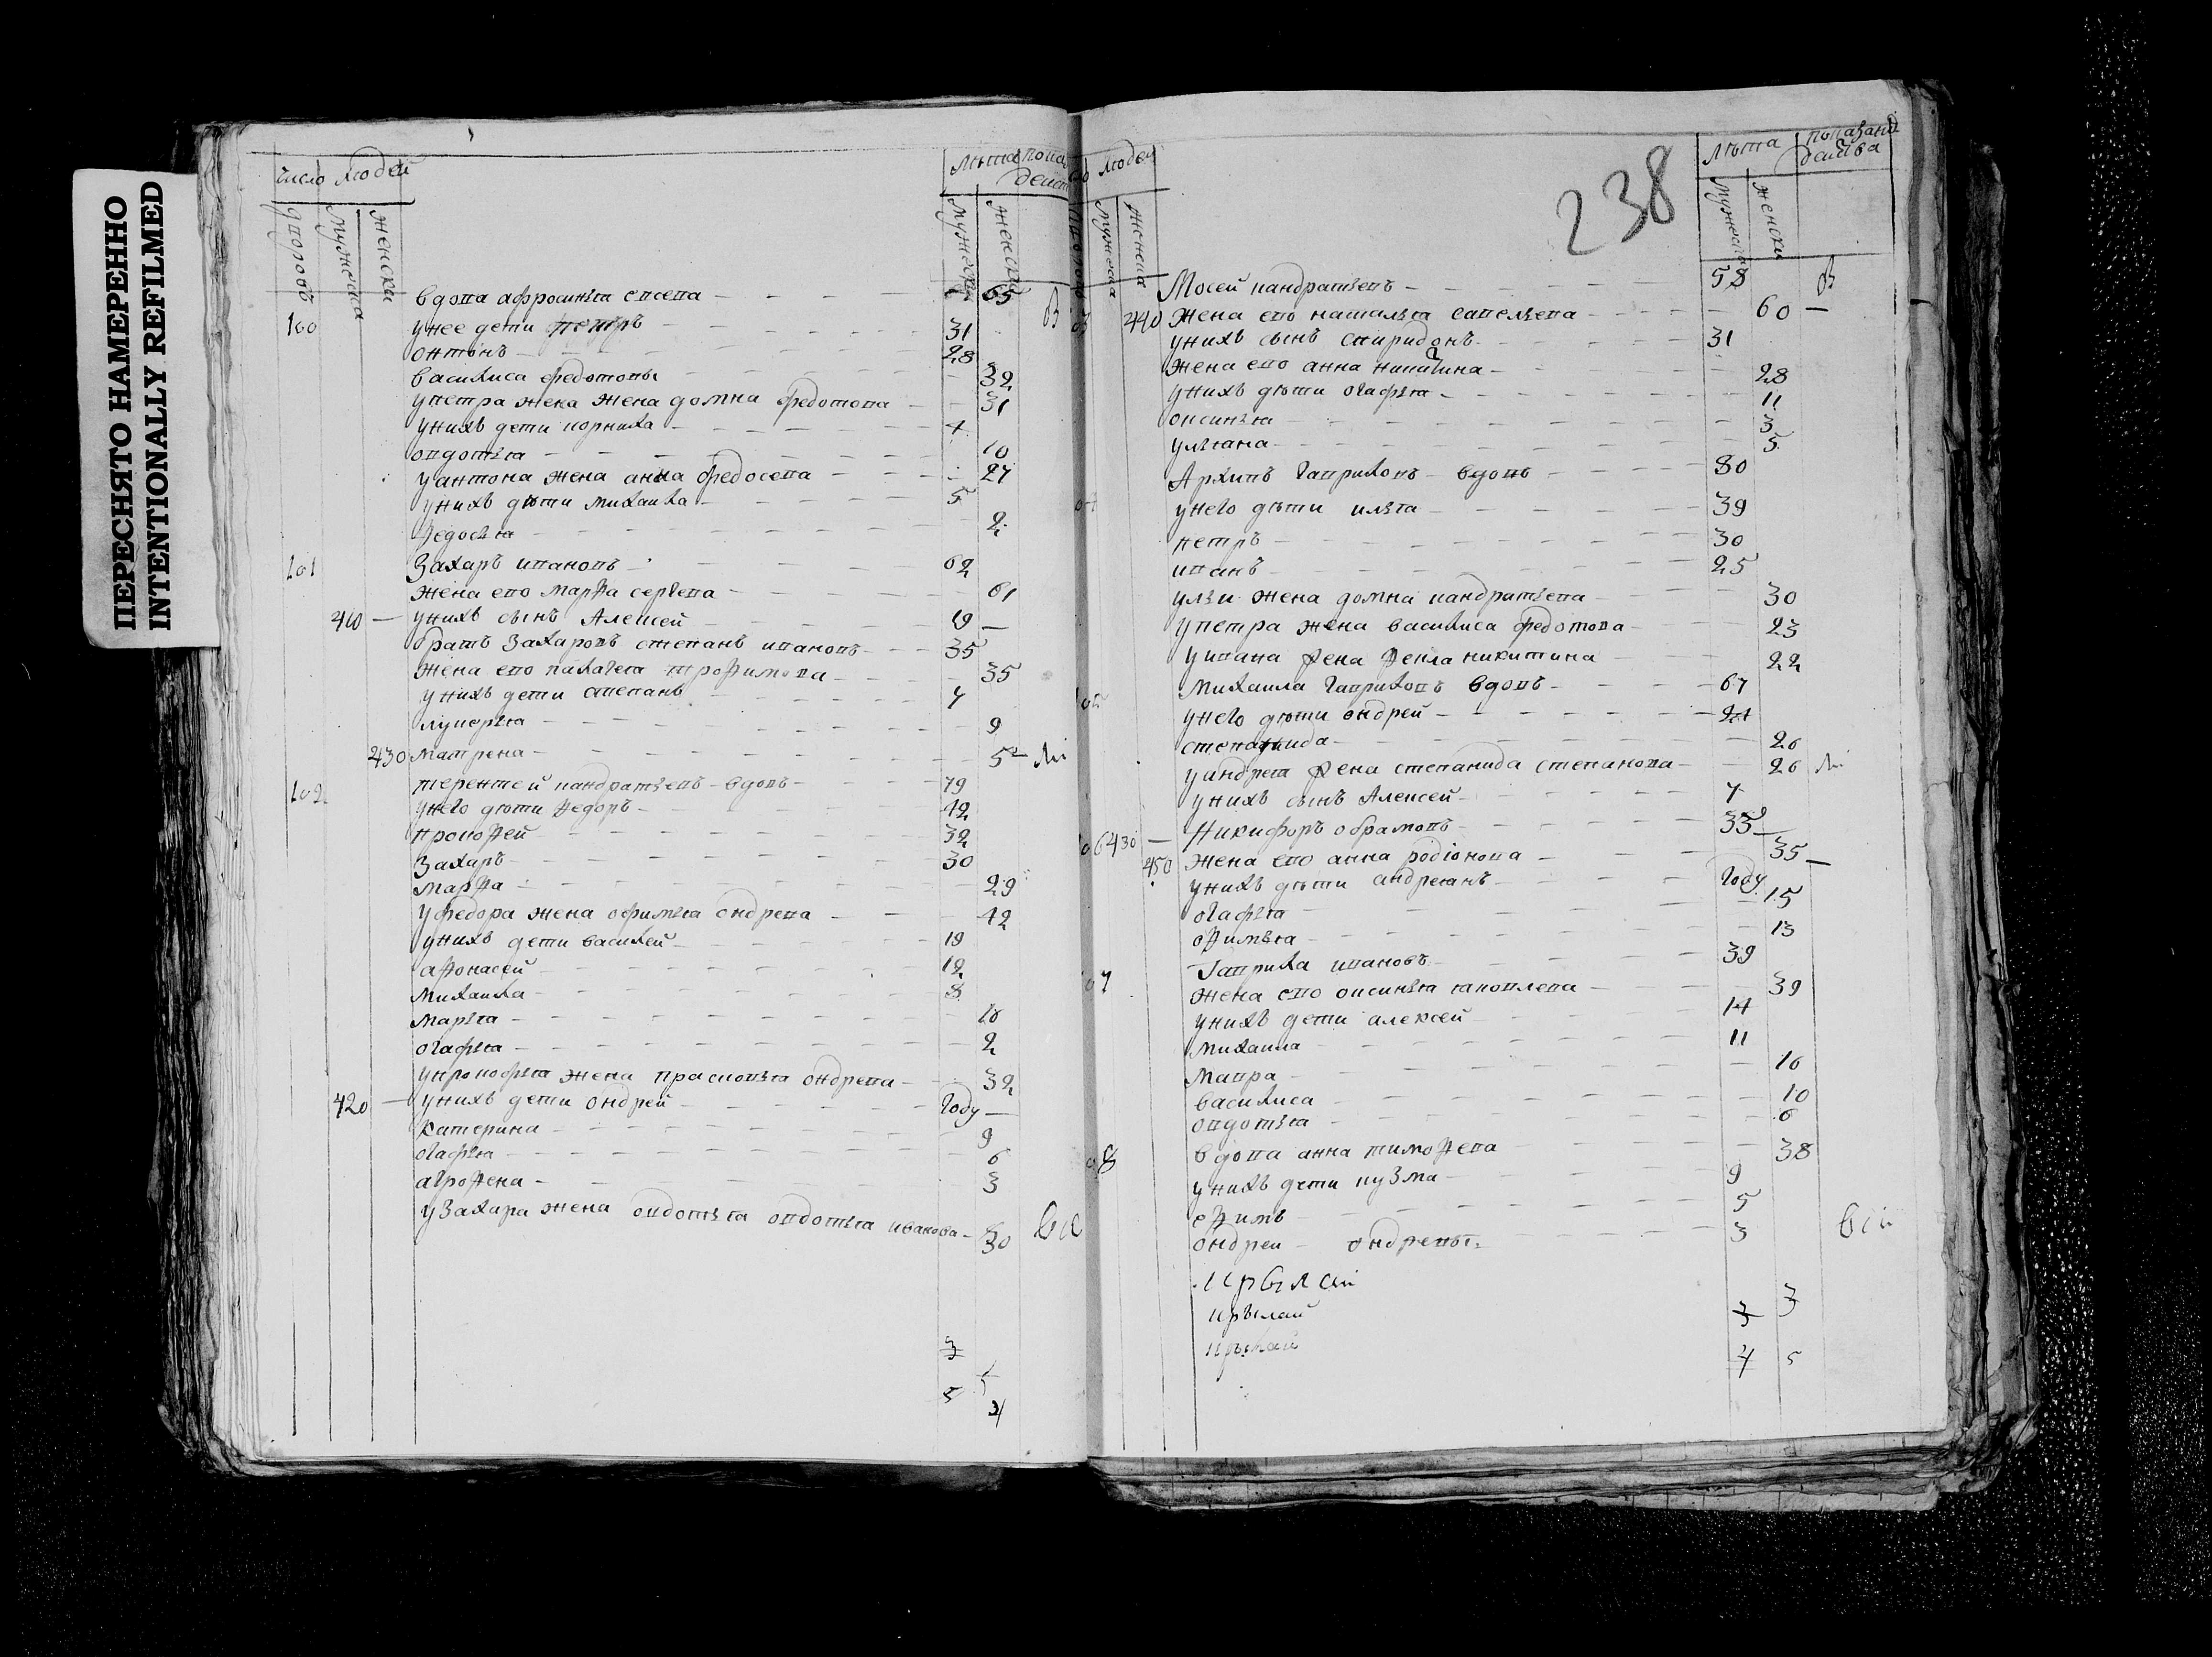 ПЕРЕСНЯТО НАМЕРЕННО
INTENTIONALLY REFILMED
число людей
лѣта
дворовъ мужеска женски
мужеска женска
вдова афросинья евсева 65
100 унее дети петръ 31
онтонъ 28
василиса федотовы 32
упетра жена жена домна федотова 31
унихъ дети корнила 4
овдотья 10
уантона жена анна федосева 27
унихъ дѣти михаила 5
Федосья 2
101 Захаръ ивановъ 62
жена ево марѳа сергева 61
410 — унихъ сынъ Алексей 19 —
братъ Захаровъ степанъ ивановъ 35
жена ево палагея трофимова 35
унихъ дети степанъ 7
лукерья 9
430 матрена 5 —
102 терентей кандратьевъ вдовъ 79
унего дѣти ѳедоръ 42
прокоѳей 32
Захаръ 30
марѳа 29
уфедора жена офимья ондрева 42
унихъ дети василей 19
аѳонасей 12
михаила 8
марья 16
огафья 2
упрокофья жена прасковья ондрева 32
420 — унихъ дети ондрей году —
катерина 9
огафья 6
агроѳена 3
уЗахара жена овдотья овдотья иванова 30
3
5 4
238
людей
лѣта показани
мужеска женска
мужеска женски
Мосей кандратьевъ 58
440 жена ево наталья савельева 60 —
унихъ сынъ спиридонъ 31
жена ево анна никитина 28
унихъ дѣти огафья 11
оксинья 3
ульяна 5
Архипъ гавриловъ вдовъ 80
унего дѣти илья 39
петръ 30
иванъ 25
ульи жена домна кандратьева 30
упетра жена василиса федотова 23
уивана жена ѳекла никитина 22
михаила гавриловъ вдовъ 67
унего дѣти ондрей 24
степанида 26
уандрея жена степанида степанова 26
унихъ сынъ Алексей 7
430 — Никифоръ обрамовъ 35 —
450 жена ево анна родіонова 35 —
унихъ дѣти андреянъ году
огафья 15
оѳимья 13
7 Гаврила ивановъ 39
жена ево оксинья яковлева 39
унихъ дети алексей 14
михаила 11
мавра 16
василиса 10
овдотья 6
8 вдова анна тимоѳева 38
унихъ дети кузма 9
еѳимъ 5
ондреи ондревы 3
3 3
4 5